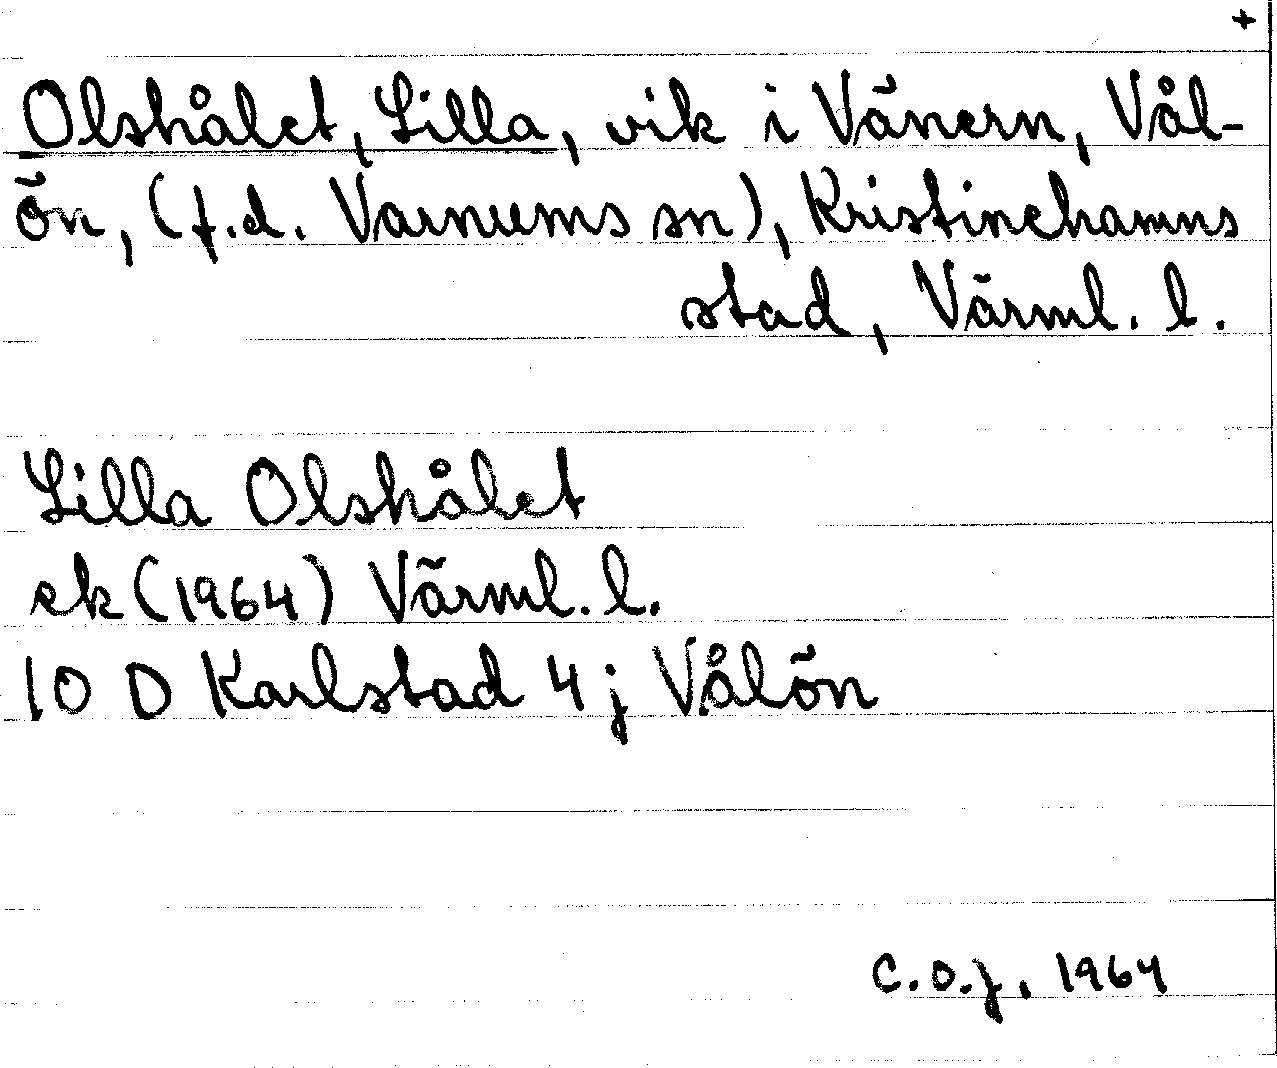 +
Olshålet, Lilla, vik i Vänern, Vål-
ön, (f.d. Varnums sn), Kristinehamns
stad, Värml. l.
Lilla Olshålet
ek (1964) Värml. l.
10 D Karlstad 4 j Vålön
C.O.J. 1964